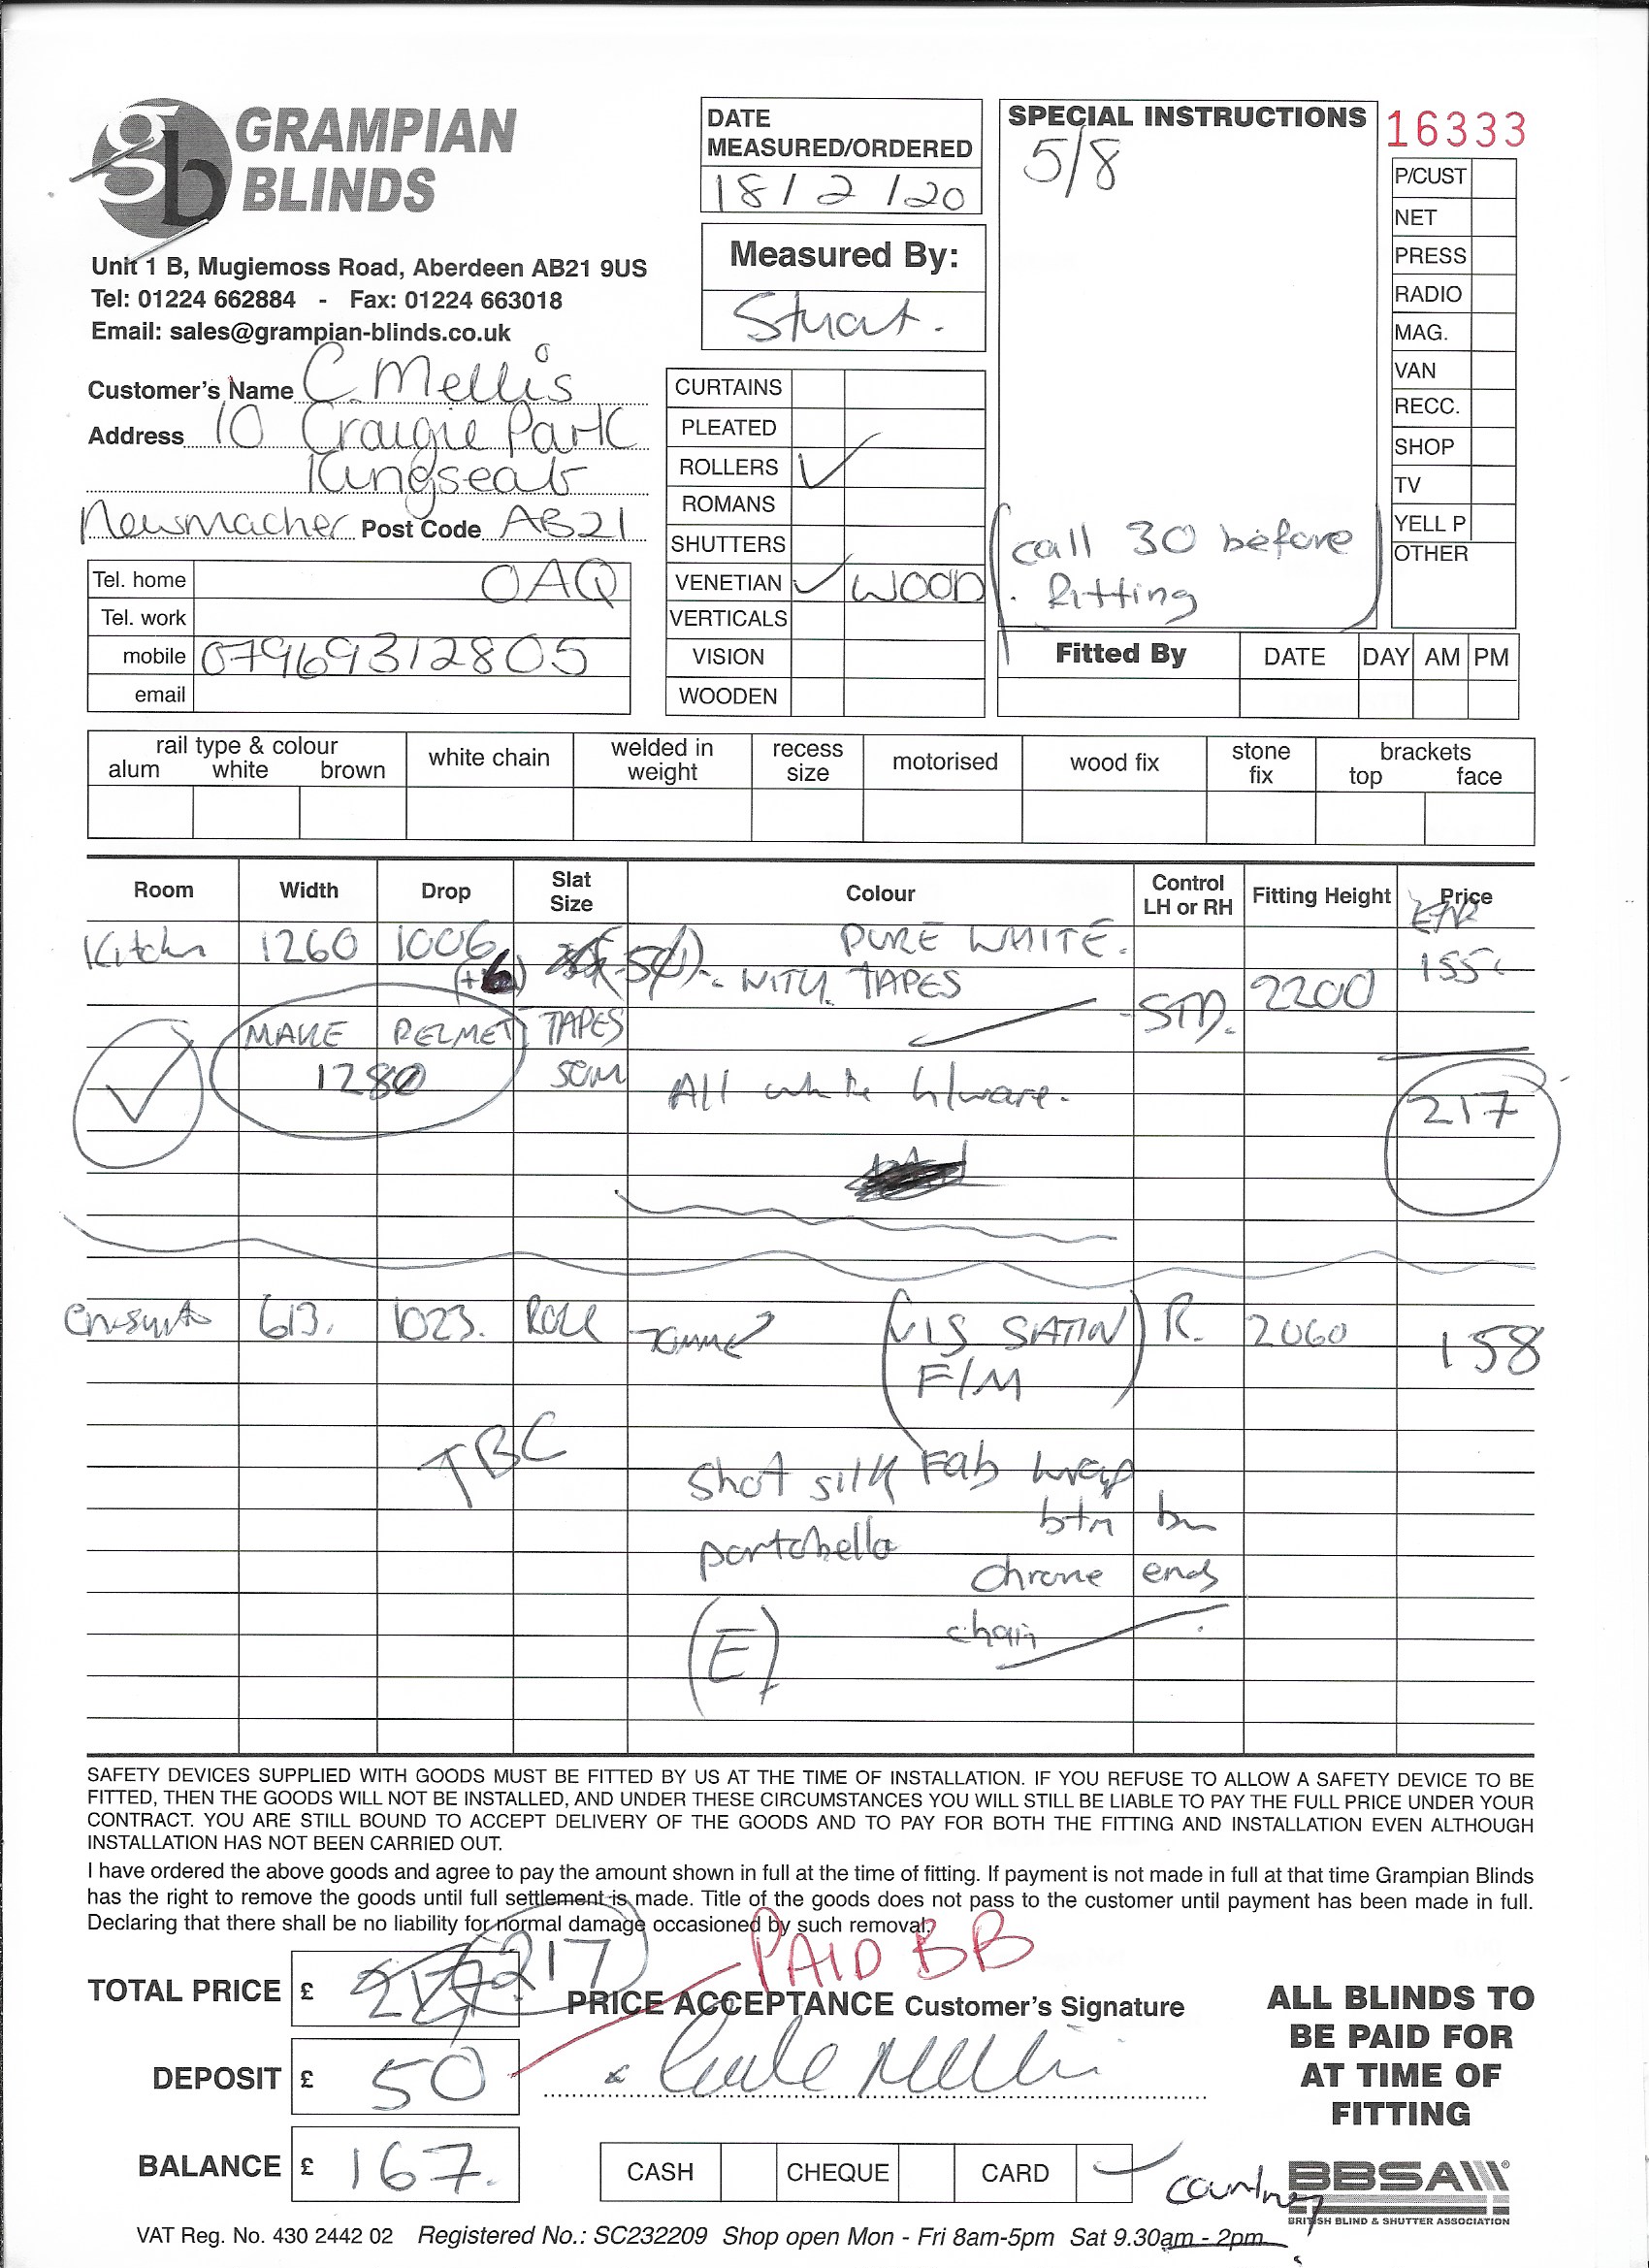 gb GRAMPIAN BLINDS
Unit 1 B, Mugiemoss Road, Aberdeen AB21 9US
Tel: 01224 662884 - Fax: 01224 663018
Email: sales@grampian-blinds.co.uk
Customer's Name C. Mellis
Address 10 Craigie Park
Kingseat
Newmacher Post Code AB21
OAQ
Tel. home
Tel. work
mobile 07969312805
email
DATE
MEASURED/ORDERED
18/2/20
Measured By:
Stuart.
CURTAINS
PLEATED
ROLLERS ✓
ROMANS
SHUTTERS
VENETIAN ✓ WOOD
VERTICALS
VISION
WOODEN
SPECIAL INSTRUCTIONS
5/8
(call 30 before
fitting)
16333
P/CUST
NET
PRESS
RADIO
MAG.
VAN
RECC.
SHOP
TV
YELL P
OTHER
Fitted By DATE DAY AM PM
rail type & colour
alum white brown
white chain
welded in weight
recess size
motorised
wood fix
stone fix
brackets
top face
Room Width Drop Slat Size Colour Control LH or RH Fitting Height Price
Kitchn 1260 1006 PURE WHITE. 155
(+6) 50 WITH TAPES STD. 2200
MAKE PELMET TAPES
✓ 1280 50M All white h/ware. 217
En-suite 613. 1023. ROLL (VIS SATIN R. 2060 158
F/M)
TBC
Shot silk Fab wrap
portobello btm bar
chrome ends
(E) chain
SAFETY DEVICES SUPPLIED WITH GOODS MUST BE FITTED BY US AT THE TIME OF INSTALLATION. IF YOU REFUSE TO ALLOW A SAFETY DEVICE TO BE
FITTED, THEN THE GOODS WILL NOT BE INSTALLED, AND UNDER THESE CIRCUMSTANCES YOU WILL STILL BE LIABLE TO PAY THE FULL PRICE UNDER YOUR
CONTRACT. YOU ARE STILL BOUND TO ACCEPT DELIVERY OF THE GOODS AND TO PAY FOR BOTH THE FITTING AND INSTALLATION EVEN ALTHOUGH
INSTALLATION HAS NOT BEEN CARRIED OUT.
I have ordered the above goods and agree to pay the amount shown in full at the time of fitting. If payment is not made in full at that time Grampian Blinds
has the right to remove the goods until full settlement is made. Title of the goods does not pass to the customer until payment has been made in full.
Declaring that there shall be no liability for normal damage occasioned by such removal.
TOTAL PRICE £ 217
PAID BB
PRICE ACCEPTANCE Customer's Signature
DEPOSIT £ 50
BALANCE £ 167.
CASH CHEQUE CARD ✓
courtney
ALL BLINDS TO
BE PAID FOR
AT TIME OF
FITTING
BBSA
BRITISH BLIND & SHUTTER ASSOCIATION
VAT Reg. No. 430 2442 02 Registered No.: SC232209 Shop open Mon - Fri 8am-5pm Sat 9.30am - 2pm